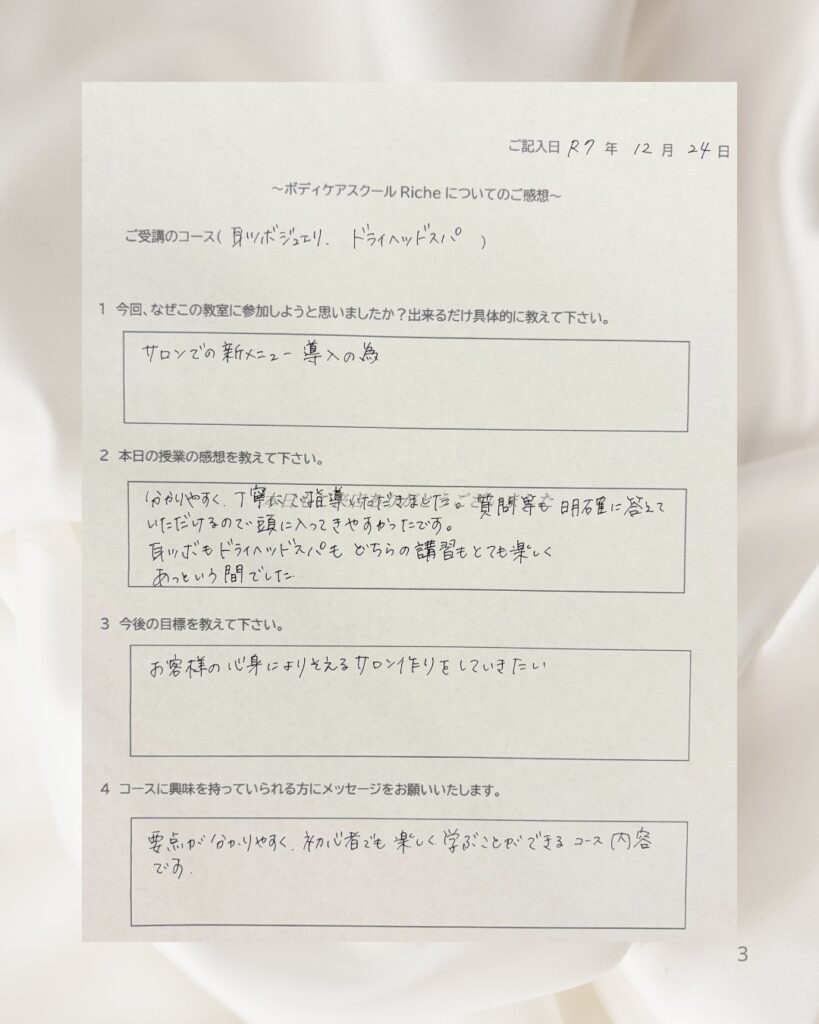 ご記入日 R7 年 12 月 24 日
～ボディケアスクール Riche についてのご感想～
ご受講のコース( 耳ツボジュエリ、 ドライヘッドスパ )
1 今回、なぜこの教室に参加しようと思いましたか？出来るだけ具体的に教えて下さい。
サロンでの新メニュー導入の為
2 本日の授業の感想を教えて下さい。
分かりやすく、丁寧にご指導いただきました。質問等も明確に答えて
いただけるので頭に入ってきやすかったです。
耳ツボもドライヘッドスパも どちらの講習もとても楽しく
あっという間でした
3 今後の目標を教えて下さい。
お客様の心身によりそえるサロン作りをしていきたい
4 コースに興味を持っていられる方にメッセージをお願いいたします。
要点が分かりやすく、初心者でも楽しく学ぶことができるコース内容
です。
3